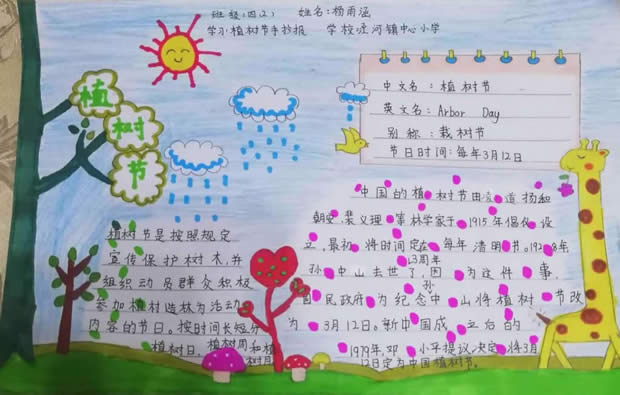 班级:四(2) 姓名:杨雨涵
学习植树节手抄报 学校:泾河镇中心小学
植
树
节
中文名:植树节
英文名:Arbor Day
别称:栽树节
节日时间:每年3月12日
植树节是按照规定
宣传保护树木,并
组织动员群众积极
参加植树造林为活动
内容的节日。按时间长短分
植树日、植树周和植
树月
中国的植树节由凌道扬和
朝史、裴义理等林学家于1915年倡仪设
立,最初将时间定在每年清明节。1928年
孙中山去世了3周年,因为这件事,
国民政府为纪念孙中山将植树节改
为3月12日。新中国成立后的
1979年,邓小平提议决定将3月
12日定为中国植树节。